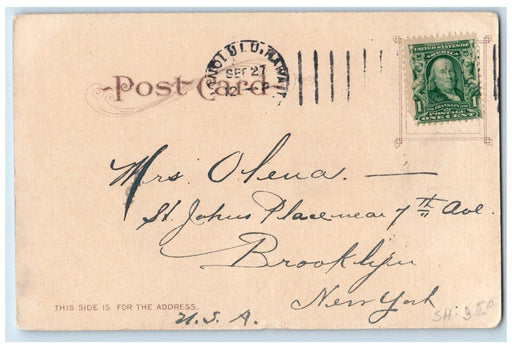 HONOLULU, HAWAII
SEP 27
12 - P
Post Card
UNITED STATES OF
AMERICA
1 1
FRANKLIN
POSTAGE
ONE CENT
Mrs. Olena. —
St. Johns Place near 7th Ave.
Brooklyn
New York
THIS SIDE IS FOR THE ADDRESS.
U.S.A.
SH. 3.50